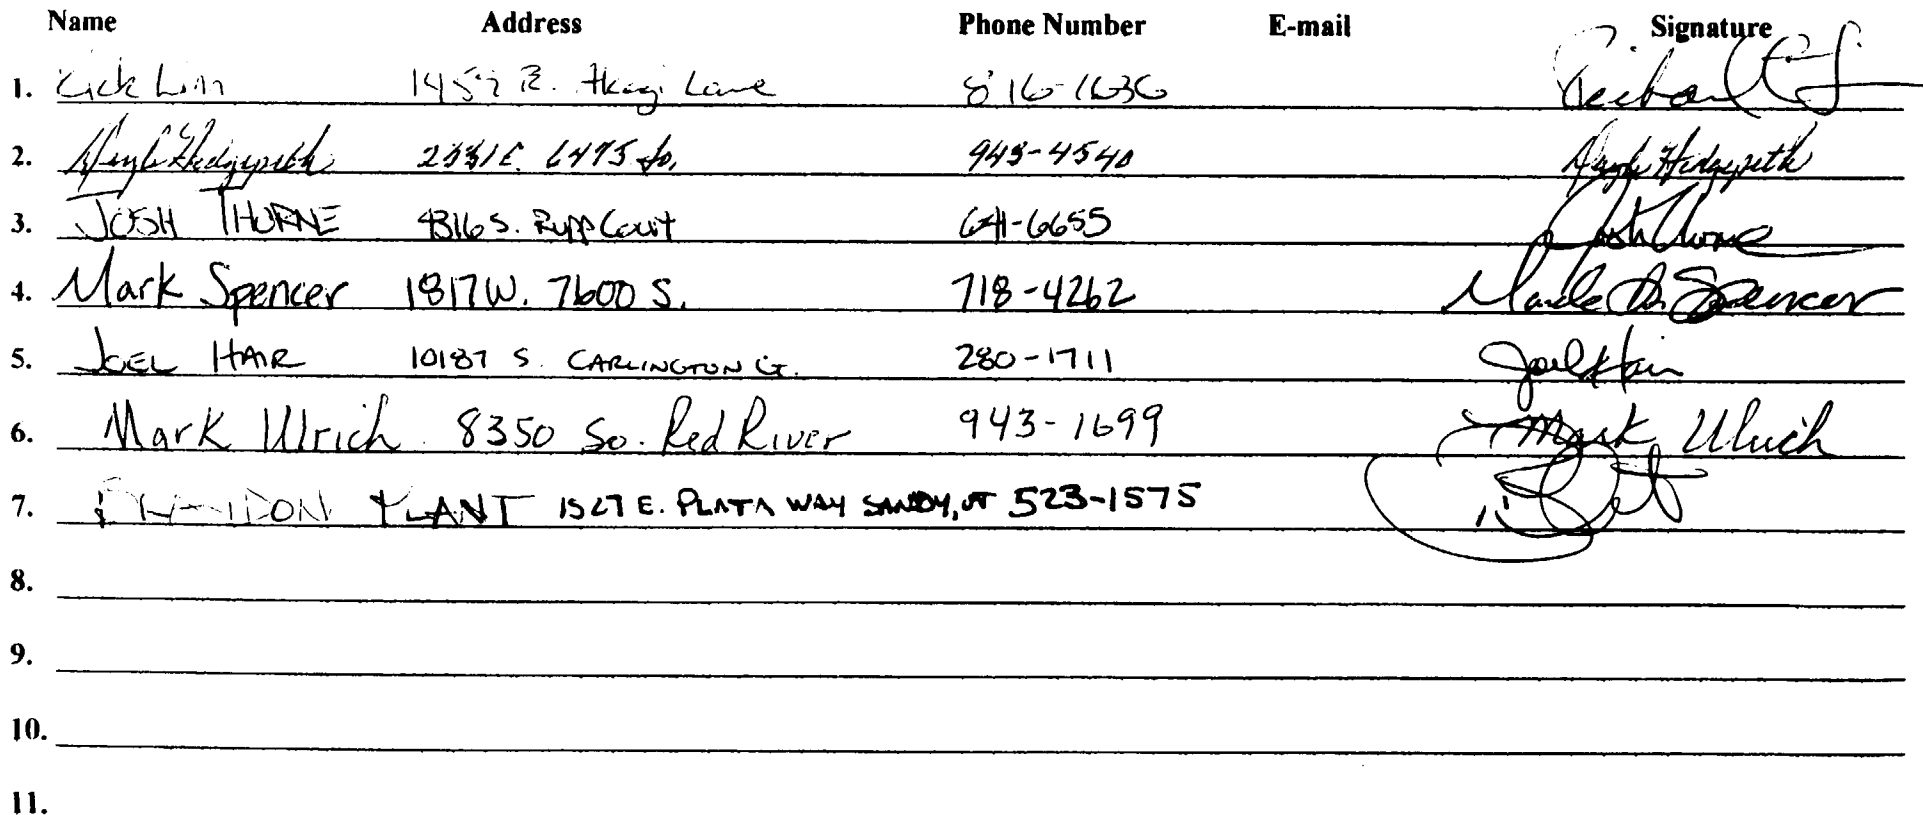 Name Address Phone Number E-mail Signature
1. Rick Lin 1457 E. Lane 816-1636 Richard
2. Hedgepeth 2331 E. 6475 So. 943-4540 Hedgepeth
3. JOSH THORNE 4316 S. Rupp Court 641-6655 Josh Thorne
4. Mark Spencer 1817 W. 7600 S. 718-4262 Mark Spencer
5. JOEL HAIR 10187 S. CARLINGTON CT. 280-1711 Joel Hair
6. Mark Ulrich 8350 So. Red River 943-1699 Mark Ulrich
7. BRANDON PLANT 1527 E. PLATA WAY SANDY, UT 523-1575
8.
9.
10.
11.